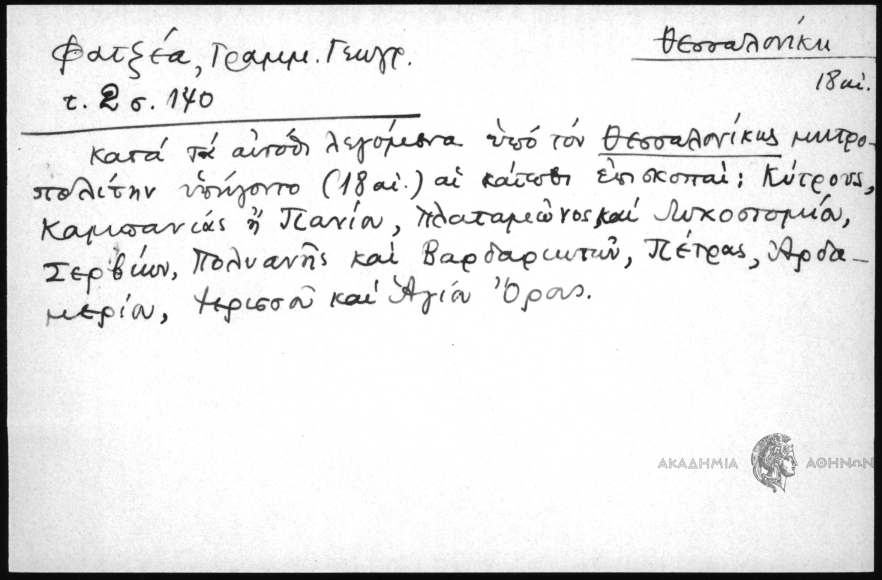 Θεσσαλονίκη
18 αἰ.
Φατζέα, Γραμμ. Γεωγρ.
τ. 2 σ. 140
Κατά τά αὐτόθι λεγόμενα ὑπό τόν Θεσσαλονίκης μητρο-
πολίτην ὑπήγοντο (18 αἰ.) αἱ κάτωθι ἐπισκοπαί: Κίτρους,
Καμπανίας ἤ Πανίου, Πλαταμῶνος καί Λυκοστομίου,
Σερβίων, Πολυανῆς καί Βαρδαριωτῶν, Πέτρας, Ἀρδα-
μερίου, Ἱερισσοῦ καί Ἁγίου Ὄρους.
ΑΚΑΔΗΜΙΑ ΑΘΗΝΩΝ